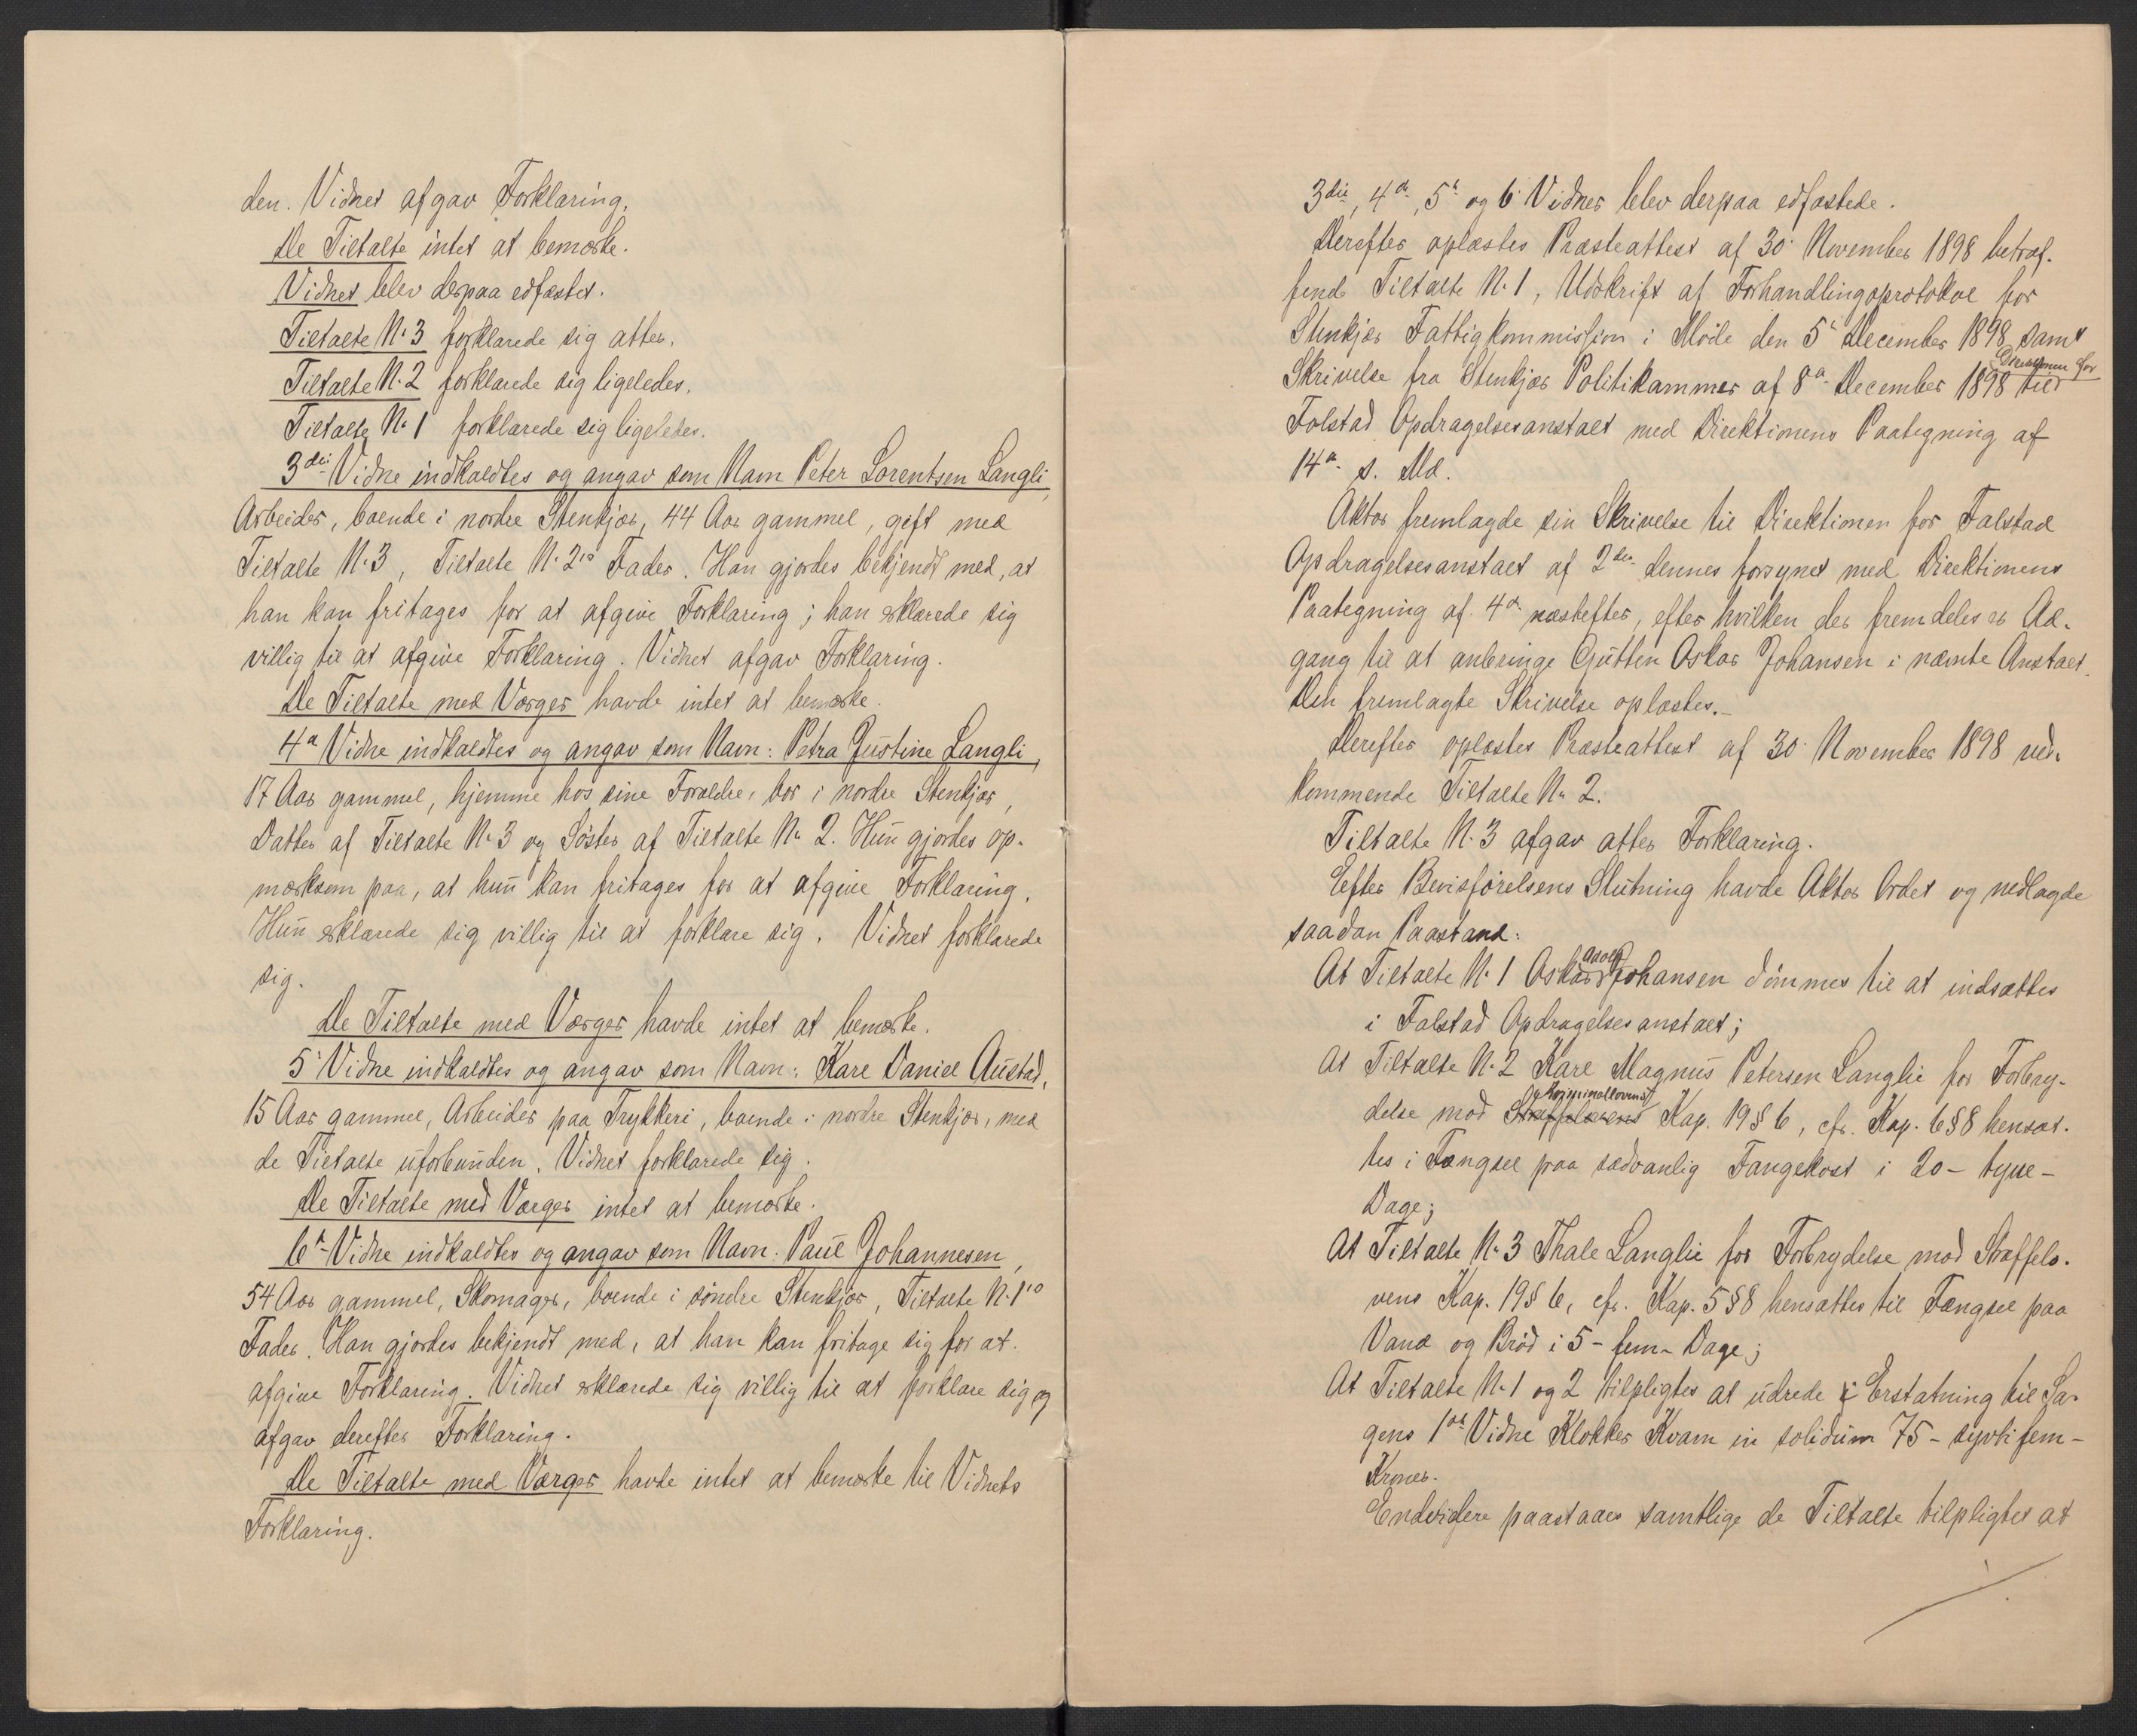 den. Vidnet afgav Forklaring.
De Tiltalte intet at bemærke.
Vidnet blev derpaa edfæstet.
Tiltalte N. 3 forklarede sig atter.
Tiltalte N. 2 forklarede sig ligeledes.
Tiltalte N. 1 forklarede sig ligeledes.
3die Vidne indkaldtes og angav som Navn Peter Lorentsen Langli,
Arbeider, boende i nordre Stenkjær, 44 Aar gammel, gift med
Tiltalte N. 3, Tiltalte N. 2's Fader. Han gjordes bekjendt med, at
han kan fritages for at afgive Forklaring; han erklærede sig
villig til at afgive Forklaring. Vidnet afgav Forklaring.
De Tiltalte med Værger havde intet at bemærke.
4de Vidne indkaldtes og angav som Navn: Petra Justine Langli,
17 Aar gammel, hjemme hos sine Forældre, bor i nordre Stenkjær,
Datter af Tiltalte N. 3 og Søster af Tiltalte N. 2. Hun gjordes op-
mærksom paa, at hun kan fritages for at afgive Forklaring.
Hun erklærede sig villig til at forklare sig. Vidnet forklarede
sig.
De Tiltalte med Værger havde intet at bemærke.
5' Vidne indkaldtes og angav som Navn: Karl Daniel Austad,
15 Aar gammel, Arbeider paa Trykkeri, boende i nordre Stenkjær, med
de Tiltalte uforbunden. Vidnet forklarede sig.
De Tiltalte med Værger intet at bemærke.
6te Vidne indkaldtes og angav som Navn: Paul Johannesen,
54 Aar gammel, Skomager, boende i søndre Stenkjær, Tiltalte N. 1's
Fader. Han gjordes bekjendt med, at han kan fritage sig for at
afgive Forklaring. Vidnet erklærede sig villig til at forklare sig og
afgav derefter Forklaring.
De Tiltalte med Værger havde intet at bemærke til Vidnets
Forklaring.
3die, 4de, 5te og 6' Vidner blev derpaa edfæstede.
Derefter oplæstes Præsteattest af 30' November 1898 betræf-
fende Tiltalte N. 1, Udskrift af Forhandlingsprotokol for
Stenkjær Fattigkommission i Møde den 5te December 1898 samt
Direktionen for
Skrivelse fra Stenkjær Politikammer af 8de December 1898 til
Falstad Opdragelsesanstalt med Direktionens Paategning af
14de s. Md.
Aktor fremlagde sin Skrivelse til Direktionen for Falstad
Opdragelsesanstalt af 2den dennes forsynet med Direktionens
Paategning af 4de næstefter, efter hvilken der fremdeles er Ad-
gang til at anbringe Gutten Oskar Johansen i nævnte Anstalt.
Den fremlagte Skrivelse oplæstes.-
Derefter oplæstes Præsteattest af 30' November 1898 ved-
kommende Tiltalte N. 2.
Tiltalte N. 3 afgav atter Forklaring.
Efter Bevisførelsens Slutning havde Aktor Ordet og nedlagde
saadan Paastand:
Adolf
At Tiltalte N. 1 Oskar Johansen dømmes til at indsættes
i Falstad Opdragelsesanstalt;
At Tiltalte N. 2 Karl Magnus Petersen Langlie for Forbry-
Kriminallovens
delse mod Straffelovens Kap. 19 § 6, cfr. Kap. 6 § 8 hensæt-
tes i Fængsel paa sædvanlig Fangekost i 20 - tyve -
Dage;
At Tiltalte N. 3 Thale Langlie for Forbrydelse mod Straffelo-
vens Kap. 19 § 6, cfr. Kap. 5 § 8 hensættes til Fængsel paa
Vand og Brød i 5 - fem - Dage;
At Tiltalte N. 1 og 2 tilpligtes at udrede i Erstatning til Sa-
gens 1ste Vidne Klokker Kvam in solidum 75 - sytti fem -
Kroner.
Endvidere paastaaes samtlige de Tiltalte tilpligtet at